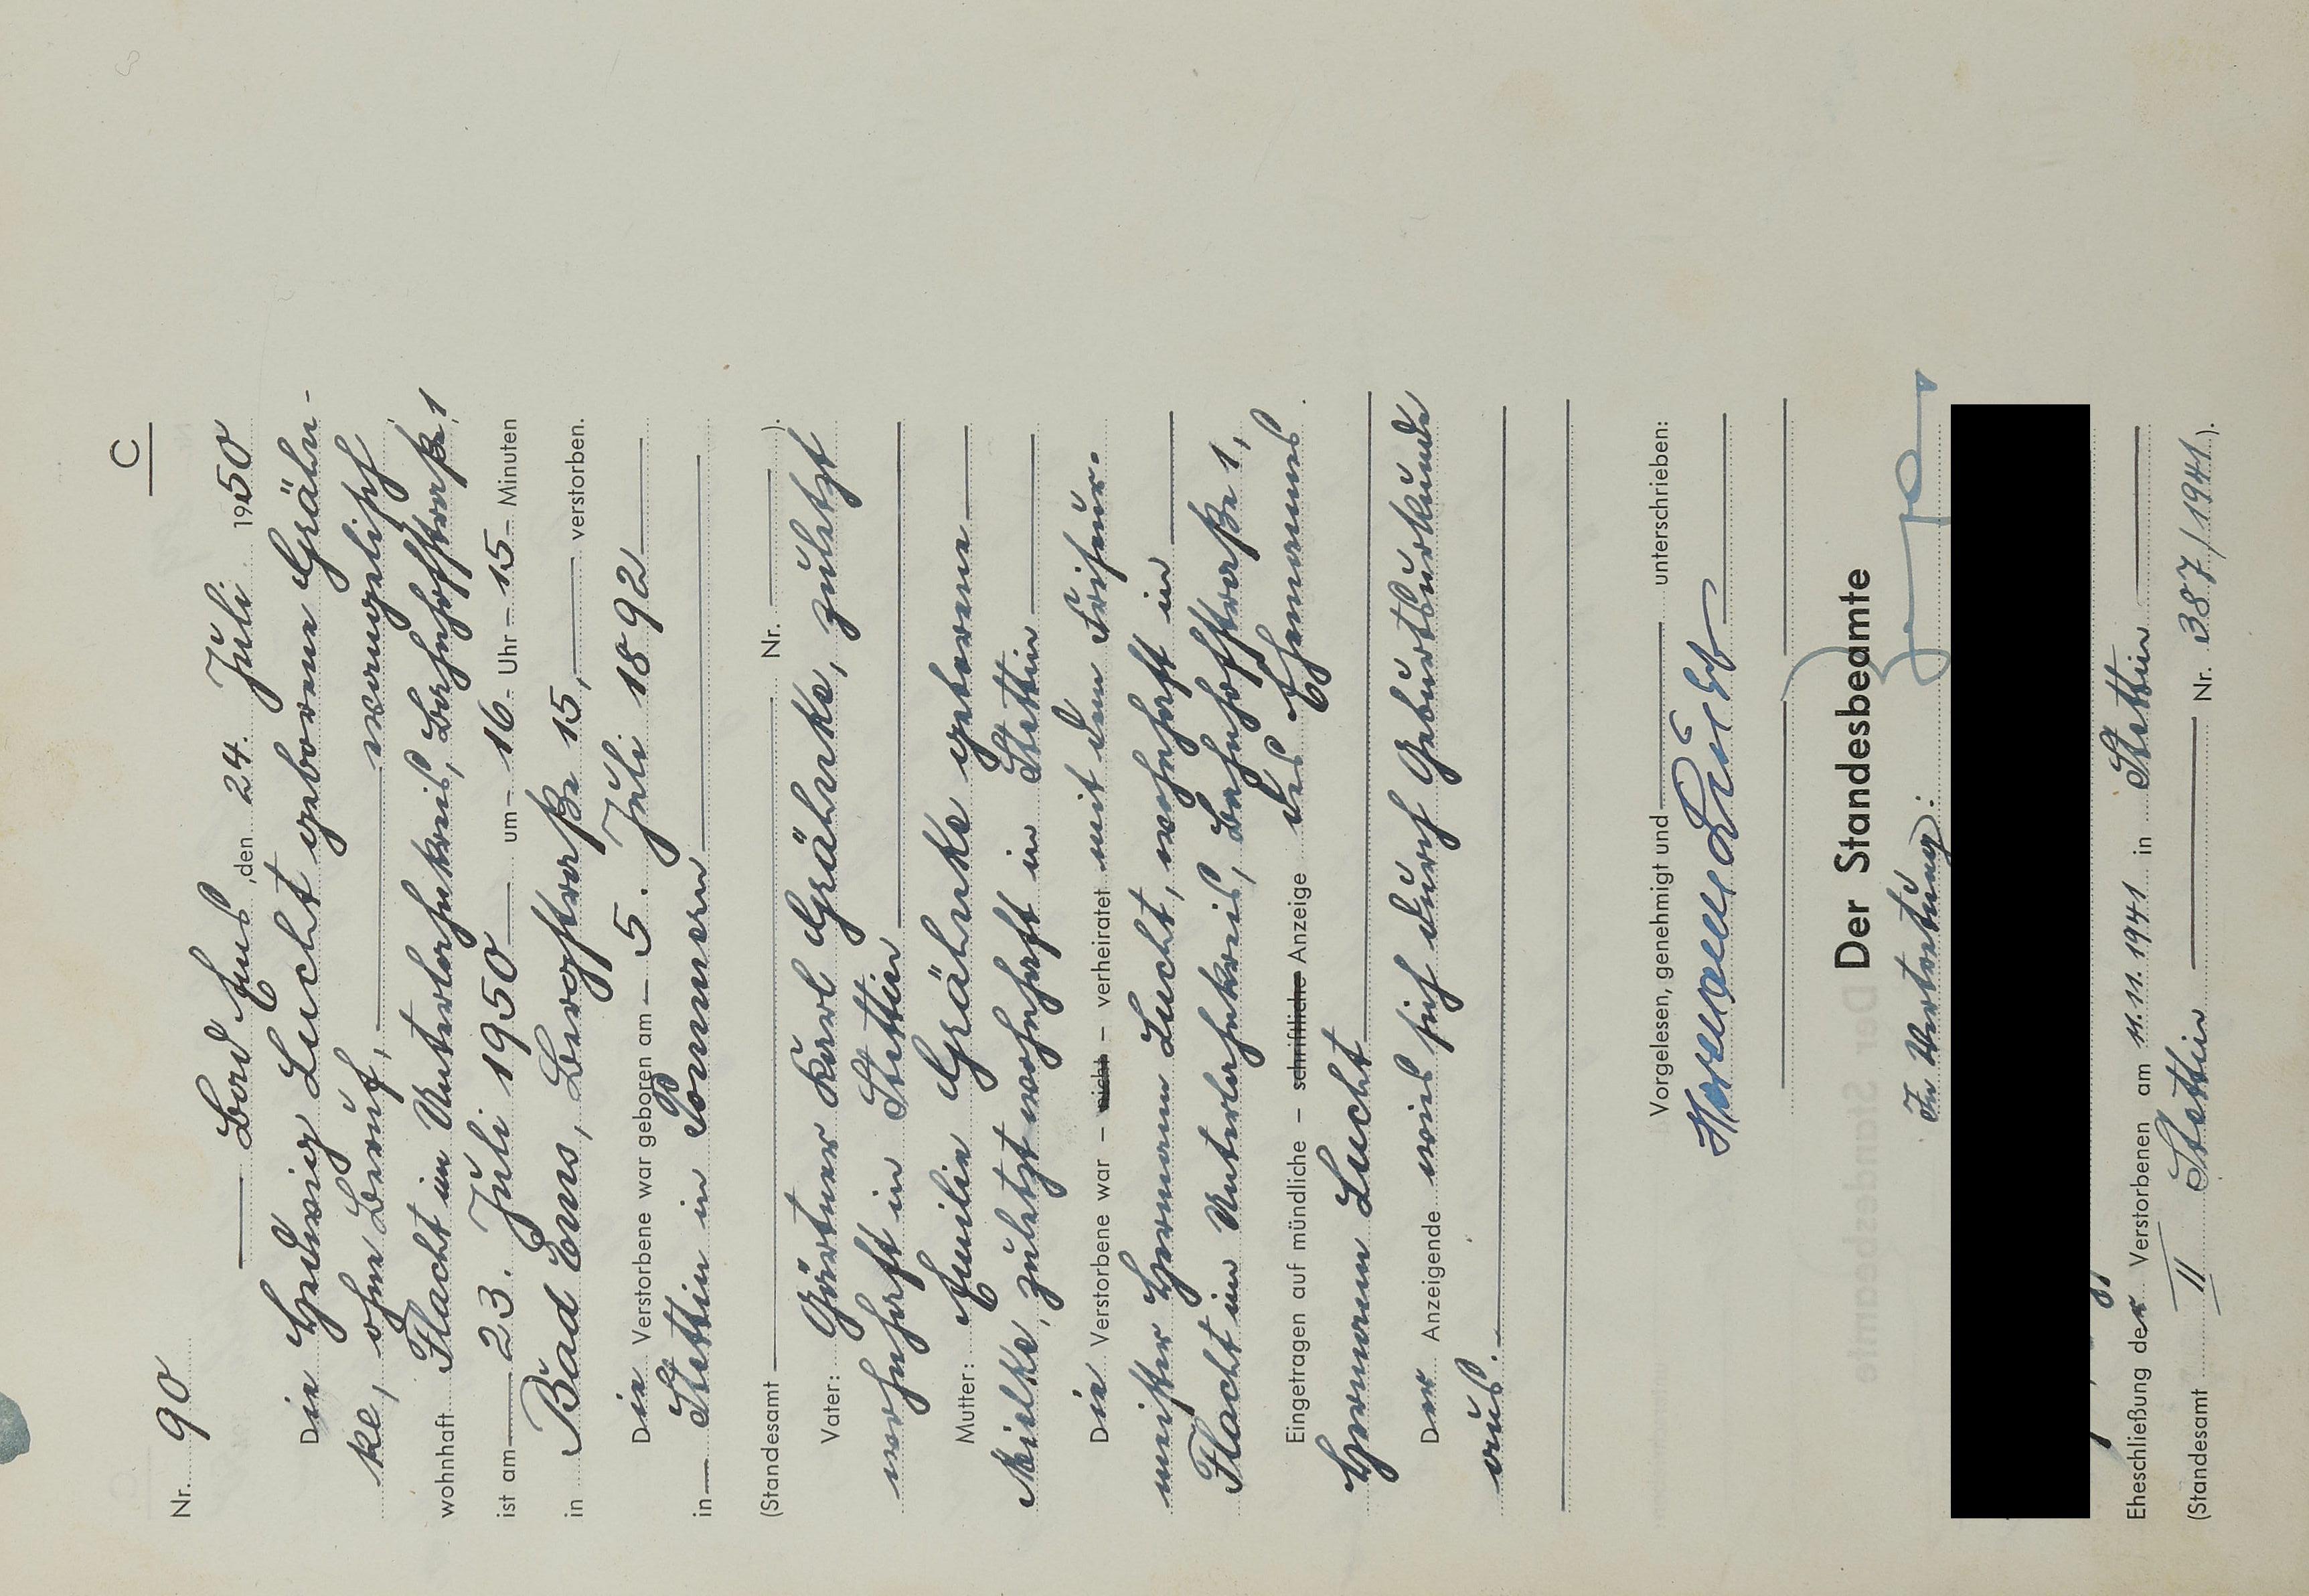 C
Nr. 90
Bad Ems, den 24. Juli 1950
Die Hedwig Lucht geborene Grähn-
ke, ohne Beruf, evangelisch,
wohnhaft Flacht im Unterlahnkreis, Bahnhofstraße 1
ist am 23. Juli 1950 um 16 Uhr 15 Minuten
in Bad Ems, Bergstraße 15, verstorben.
Die Verstorbene war geboren am 5. Juli 1892
in Stettin in Pommern
(Standesamt Nr. ).
Vater: Gärtner Karl Grähnke, zuletzt
wohnhaft in Stettin
Mutter: Emilie Grähnke geborene
Mielke, zuletzt wohnhaft in Stettin
Die Verstorbene war – nicht – verheiratet mit dem Friseur-
meister Hermann Lucht, wohnhaft in
Flacht im Unterlahnkreis, Bahnhofstraße 1,
Eingetragen auf mündliche – schriftliche Anzeige des Ehemannes
Hermann Lucht
Der Anzeigende wies sich durch Geburtsurkunde
aus.
Vorgelesen, genehmigt und unterschrieben:
Hermann Lucht
Der Standesbeamte
In Vertretung:
Eheschließung der Verstorbenen am 11.11.1941 in Stettin
(Standesamt II Stettin Nr. 387/1941).